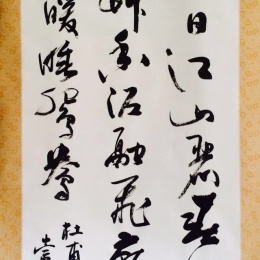 日江山麗春
草香泥融飛燕
暖睡鴛鴦
杜甫